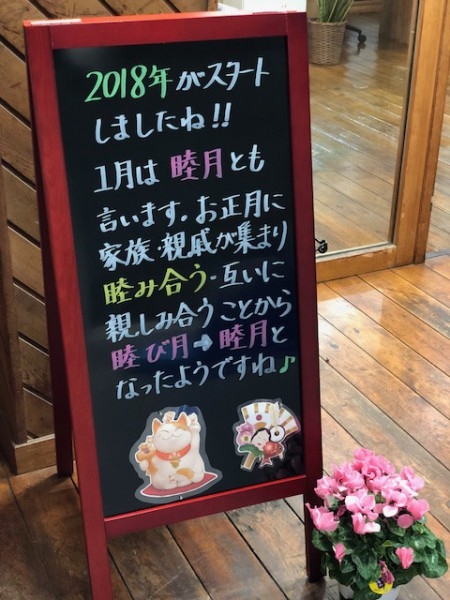 2018年がスタート
しましたね!!
1月は 睦月とも
言います。お正月に
家族・親戚が集まり
睦み合う・互いに
親しみ合うことから
睦び月→睦月と
なったようですね♪